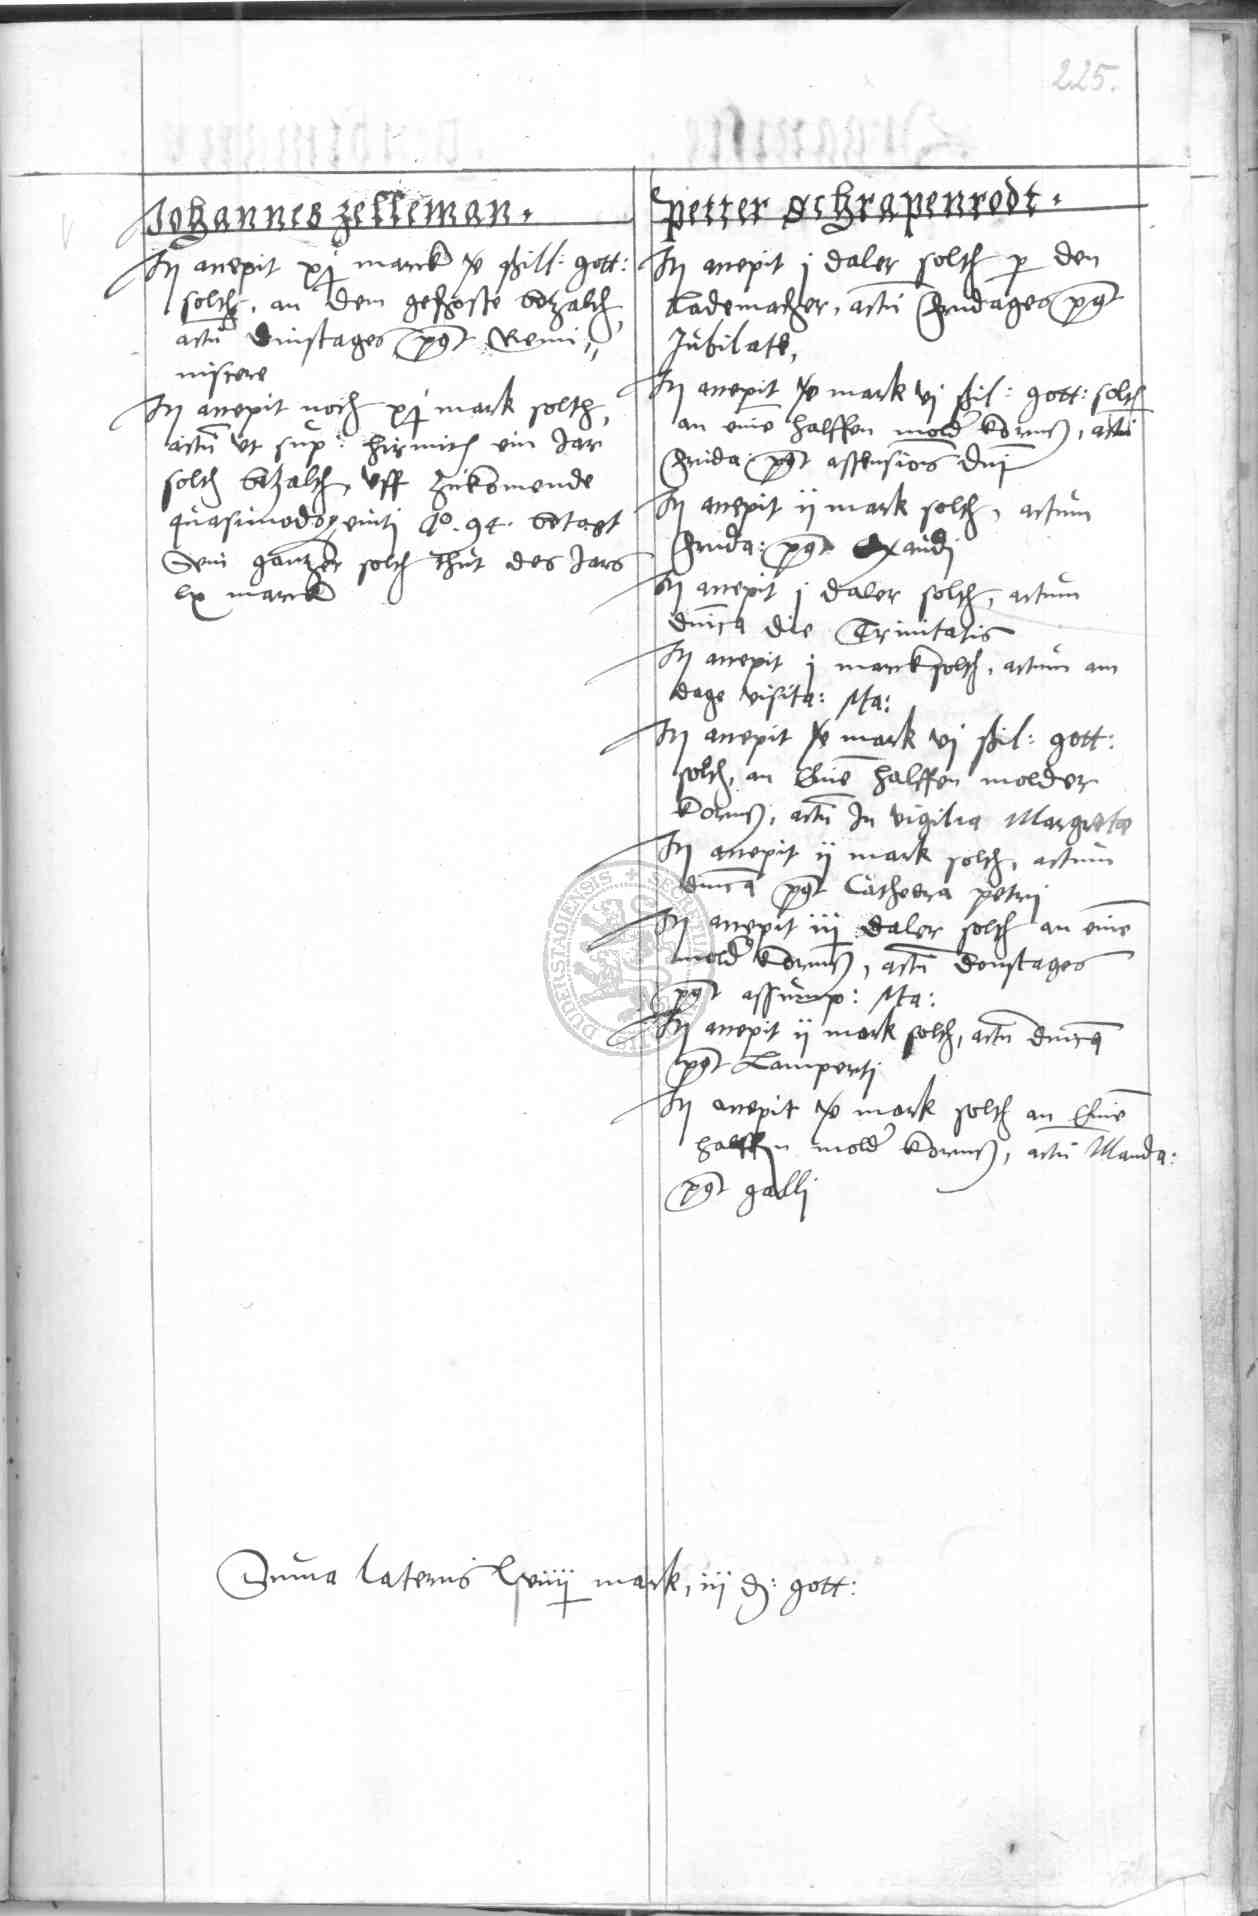 225.
Johannes Zelleman.
It accepit xj marck x schill: gott:
solth, an dem geschosse betzalth,
actū dinstages post Remi=
niscere
It accepit noch xj mark solth,
actū ut sup: hirmith ein Jar
solth betzalth, uff zukomende
quasimodogeniti Ao. 94. betaget
Sein gantzer solth thut des Jars
lx marck
Petter Schrapenrodt.
It accepit j daler solth p den
Lademacher, actū Fridages post
Jubilate,
It accepit mark vj schil: gott: solth
an einē halffen mold' korns, actū
Frida: post assensiōs dnī
It accepit ij mark solth, actum
Frida: post Exaudi
It accepit j daler solth, actum
dnīca die Trinitatis
It accepit j marck solth, actum am
dage visita: Ma:
It accepit mark vj schil: gott:
solth, an Einē halffen molder
korns, actū In vigilia Margretæ
It accepit ij mark solth, actum
dnīca post Cathedra petri
It accepit iij daler solth an einē
mold' korns, actū donstages
post assump: Ma:
It accepit ij mark solth, actū dnīca
post Lamperti
It accepit mark solth an Einē
halffen mold' korns, actū Manda:
post galli
Suma lateris mark, iij d: gott:
SECRETUM DUDERSTADIENSIS